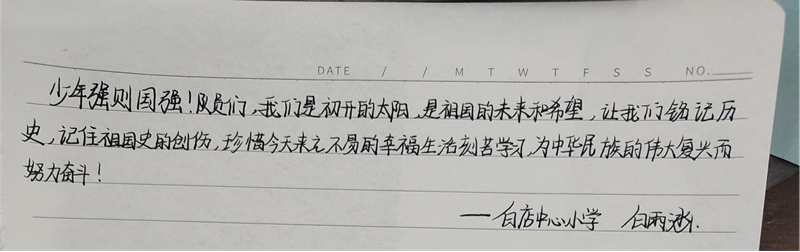 DATE / / M T W T F S S NO.
少年强则国强！队员们，我们是初开的太阳，是祖国的未来和希望，让我们铭记历
史，记住祖国史的创伤，珍惜今天来之不易的幸福生活刻苦学习，为中华民族的伟大复兴而
努力奋斗！
——白店中心小学 白雨涵